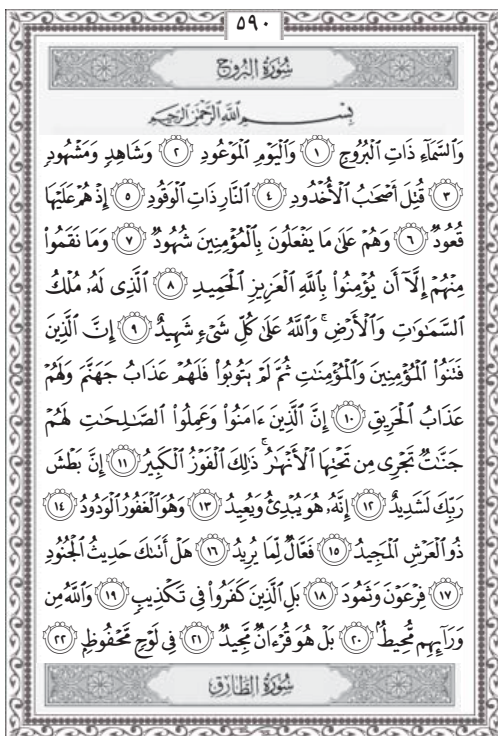 ٥٩٠
سُورَةُ البُرُوجِ
بِسْمِ ٱللَّهِ ٱلرَّحْمَٰنِ ٱلرَّحِيمِ
وَٱلسَّمَآءِ ذَاتِ ٱلْبُرُوجِ ١ وَٱلْيَوْمِ ٱلْمَوْعُودِ ٢ وَشَاهِدٍ وَمَشْهُودٍ
٣ قُتِلَ أَصْحَٰبُ ٱلْأُخْدُودِ ٤ ٱلنَّارِ ذَاتِ ٱلْوَقُودِ ٥ إِذْ هُمْ عَلَيْهَا
قُعُودٌ ٦ وَهُمْ عَلَىٰ مَا يَفْعَلُونَ بِٱلْمُؤْمِنِينَ شُهُودٌ ٧ وَمَا نَقَمُوا۟
مِنْهُمْ إِلَّآ أَن يُؤْمِنُوا۟ بِٱللَّهِ ٱلْعَزِيزِ ٱلْحَمِيدِ ٨ ٱلَّذِى لَهُۥ مُلْكُ
ٱلسَّمَٰوَٰتِ وَٱلْأَرْضِ ۚ وَٱللَّهُ عَلَىٰ كُلِّ شَىْءٍ شَهِيدٌ ٩ إِنَّ ٱلَّذِينَ
فَتَنُوا۟ ٱلْمُؤْمِنِينَ وَٱلْمُؤْمِنَٰتِ ثُمَّ لَمْ يَتُوبُوا۟ فَلَهُمْ عَذَابُ جَهَنَّمَ وَلَهُمْ
عَذَابُ ٱلْحَرِيقِ ١٠ إِنَّ ٱلَّذِينَ ءَامَنُوا۟ وَعَمِلُوا۟ ٱلصَّٰلِحَٰتِ لَهُمْ
جَنَّٰتٌ تَجْرِى مِن تَحْتِهَا ٱلْأَنْهَٰرُ ۚ ذَٰلِكَ ٱلْفَوْزُ ٱلْكَبِيرُ ١١ إِنَّ بَطْشَ
رَبِّكَ لَشَدِيدٌ ١٢ إِنَّهُۥ هُوَ يُبْدِئُ وَيُعِيدُ ١٣ وَهُوَ ٱلْغَفُورُ ٱلْوَدُودُ ١٤
ذُو ٱلْعَرْشِ ٱلْمَجِيدُ ١٥ فَعَّالٌ لِّمَا يُرِيدُ ١٦ هَلْ أَتَىٰكَ حَدِيثُ ٱلْجُنُودِ
١٧ فِرْعَوْنَ وَثَمُودَ ١٨ بَلِ ٱلَّذِينَ كَفَرُوا۟ فِى تَكْذِيبٍ ١٩ وَٱللَّهُ مِن
وَرَآئِهِم مُّحِيطٌۢ ٢٠ بَلْ هُوَ قُرْءَانٌ مَّجِيدٌ ٢١ فِى لَوْحٍ مَّحْفُوظٍۭ ٢٢
سُورَةُ الطَّارِقِ